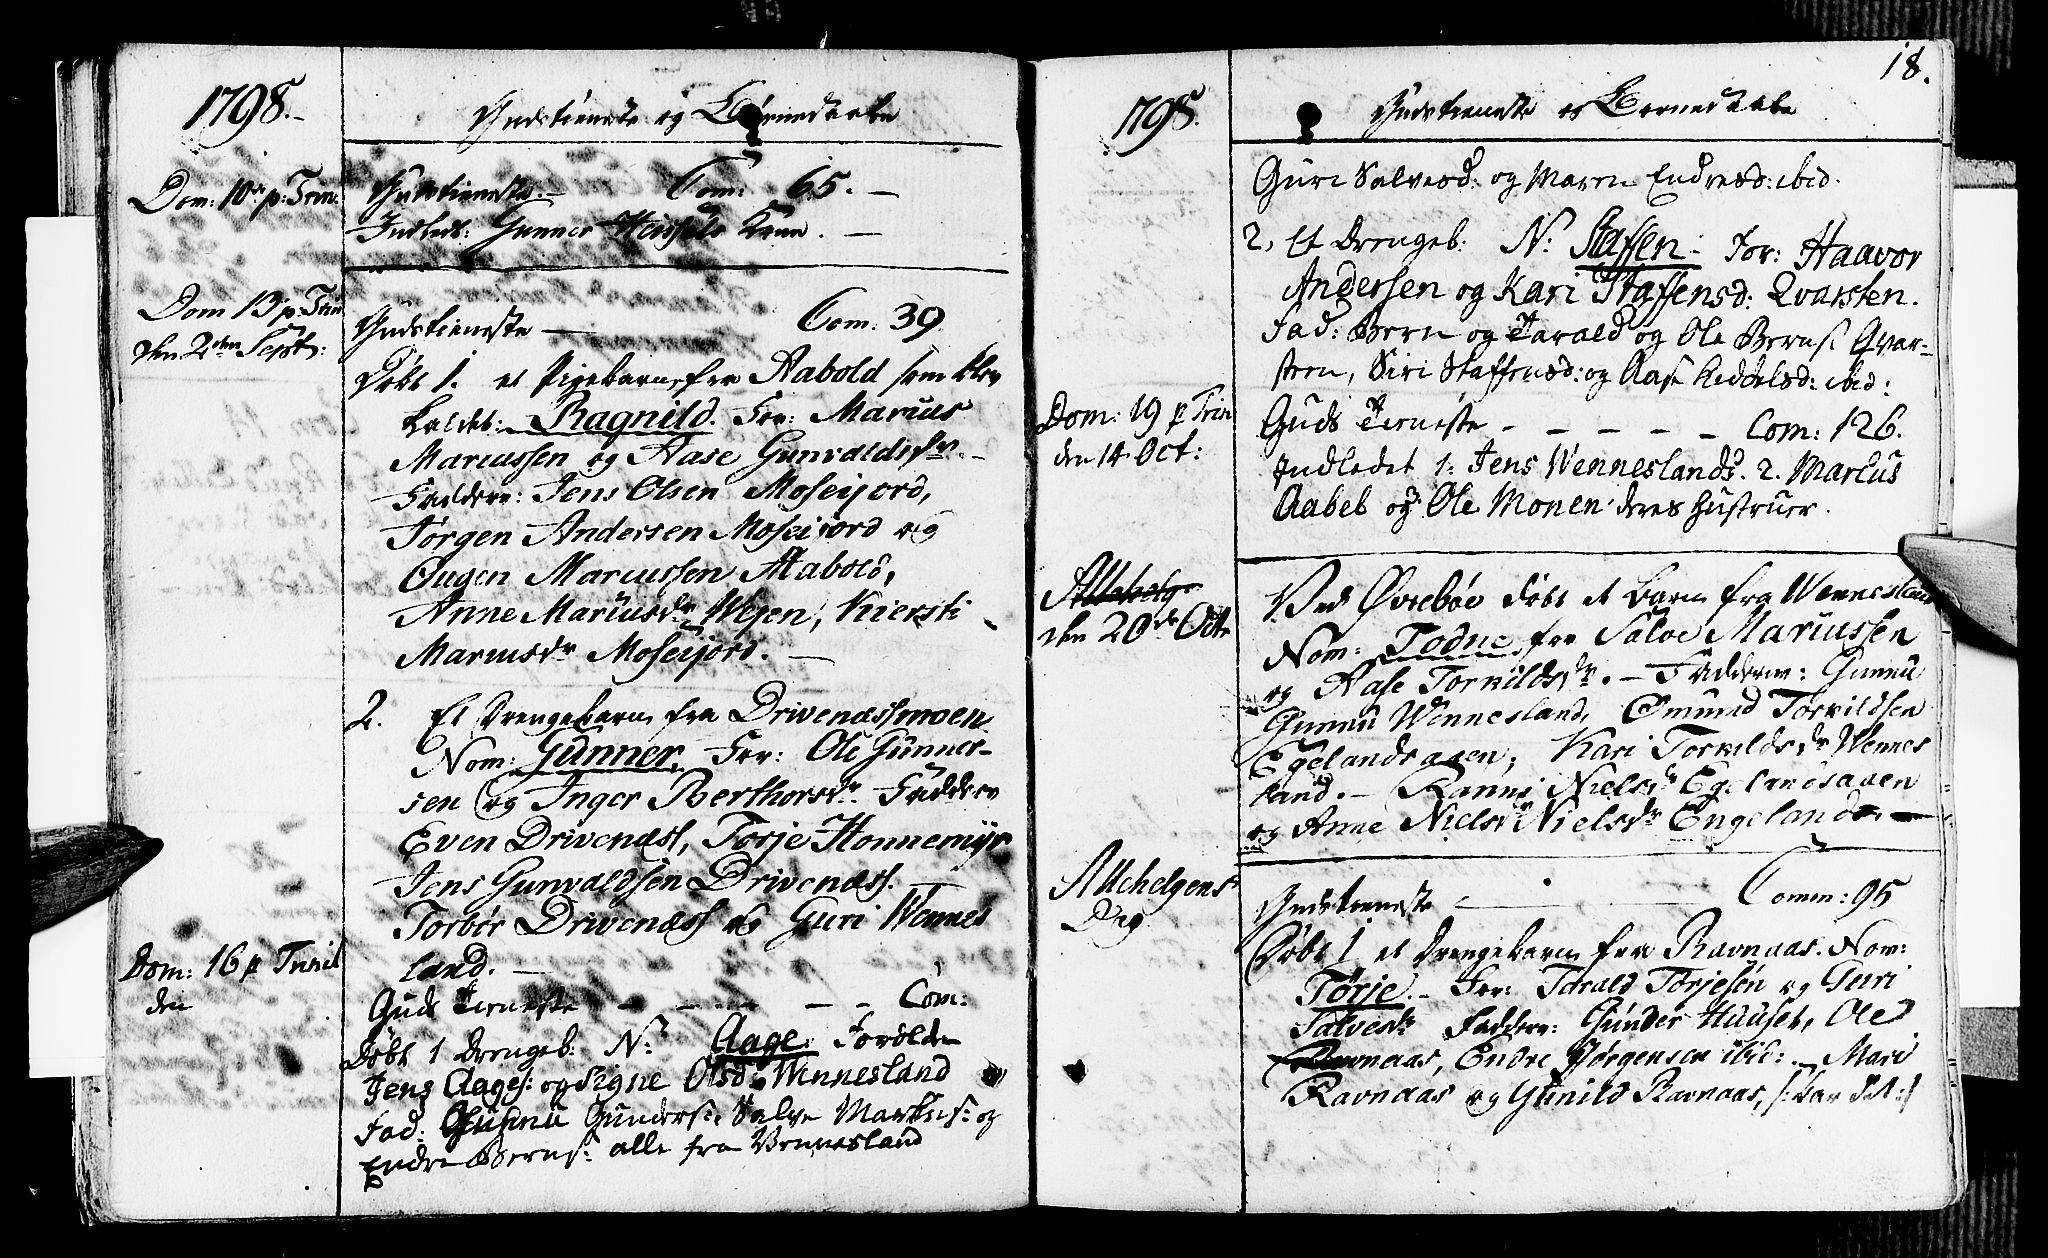 1798.
Gudstieneste og Børnedaabe
Dom: 10de p: Trin:
Gudstieneste. Com: 65.
Indledt: Gunner Heisfals Kone.
Dom 13 p Trin
den 2den Septr:
Gudstieneste Com: 39
Døbt 1. et Pigebarn, fra Aabold som blev
kaldet: Ragnild. For: Marcus
Marcussen og Aase Gunvaldsdr.
Faddere: Jens Olsen Moseijord,
Jørgen Andersen Moseijord og
Øugen Marcussen Aabold,
Anne Marcusdr Wesen, Kiersti
Marcusdr Moseijord.
2. Et Drengebarn fra Drivenæssmoen
Nom: Gunner, For: Ole Gunner-
sen og Inger Berthorsdr Faddere
Even Drivenæss, Torje Honnemyr
Jens Gunvaldsen Drivenæss.
Torbør Drivenæss og Guri Wennes
land.
Dom: 16 p Trinit
den
Guds Tieneste Com:
Døbt 1 Drengeb: N: Aage. Forældre
Jens Aages: og Signe Olsd: Wennesland
Fad: Gunnu Gunders: Salve Markus: og
Endre Berns: alle fra Vennesland
18.
1798.
Gudstieneste og Børnedaabe
Guri Salvesd: og Maren Endresd: ibid.
2, Et Drengeb: N: Staffen. For: Haavor
Andersen og Kari Staffensd: Qvarsten.
Fad: Bern og Tarald og Ole Berns: Qvar-
steen, Siri Staffensd: og Aase Keddelsd: ibid:
Dom: 19 p Trin
den 14 Oct:
Guds Tieneste Com: 126.
Indledet 1: Jens Wenneslands. 2. Marcus
Aabel og Ole Monen deres Hustruer.
Allehelg
den 20de Octr
Ved Øvrebøe døbt et Barn fra Wennesland
Nom: Todne, for Salve Marcussen
og Aase Torkildsdr. Faddere: Gunnu
Gunnu Wennesland, Ømund Torkildsen
Egelandsaaen, Kari Torkildsdr Wennes
land. Ranni Nielsdr Egelandsaaen
og Anne Nielsdr Nielsdr Engeland
Allehelgens
Dag
Gudstieneste Comm: 95
Døbt 1 et Drengebarn fra Ravnaas. Nom:
Tørje. For: Tarald Torjesen og Guri
Salvesdr Faddere: Gunder Huuset, Ole
Ravnaas, Endre Jørgensen ibid: Mari
Ravnaas og Gunild Ravnaas, /: bar det :/